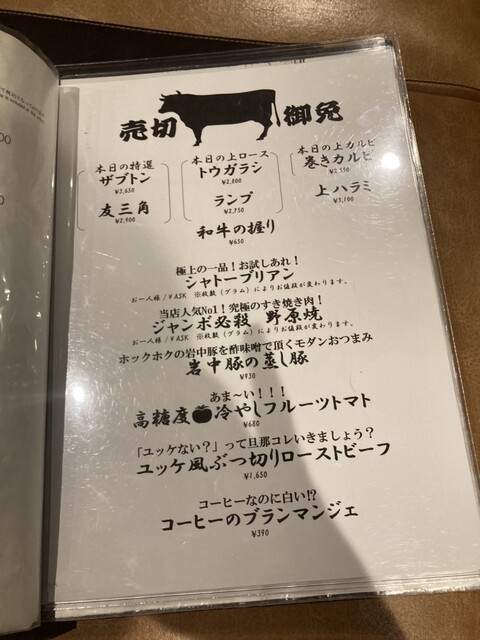 売切 御免
本日の特選
ザブトン
¥3,650
友三角
¥2,900
本日の上ロース
トウガラシ
¥2,800
ランプ
¥2,750
本日の上カルビ
巻きカルビ
¥2,550
上ハラミ
¥3,100
和牛の握り
¥650
極上の一品！お試しあれ！
シャトーブリアン
お一人様/¥ASK ※枚数（グラム）によりお値段が変わります。
当店人気No1！究極のすき焼き肉！
ジャンボ必殺 野原焼
お一人様/¥ASK ※枚数（グラム）によりお値段が変わります。
ホックホクの岩中豚を酢味噌で頂くモダンおつまみ
岩中豚の蒸し豚
¥930
あま〜い！！！
高糖度冷やしフルーツトマト
¥680
「ユッケない？」って旦那コレいきましょう？
ユッケ風ぶつ切りローストビーフ
¥1,650
コーヒーなのに白い!?
コーヒーのブランマンジェ
¥390